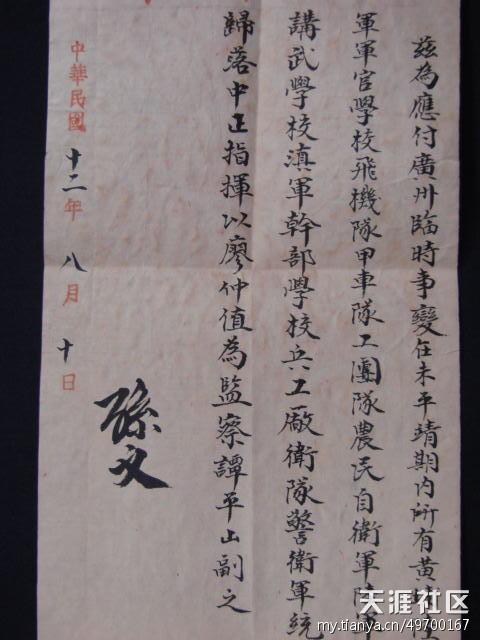 茲為應付廣州臨時事變在未平靖期內所有黃埔
軍軍官學校飛機隊甲車隊工團隊農民自衛軍陸軍
講武學校滇軍幹部學校兵工廠衛隊警衛軍統
歸落中正指揮以廖仲值為監察譚平山副之
孫文
中華民國十二年八月十日
天涯社区
my.tianya.cn/49700167